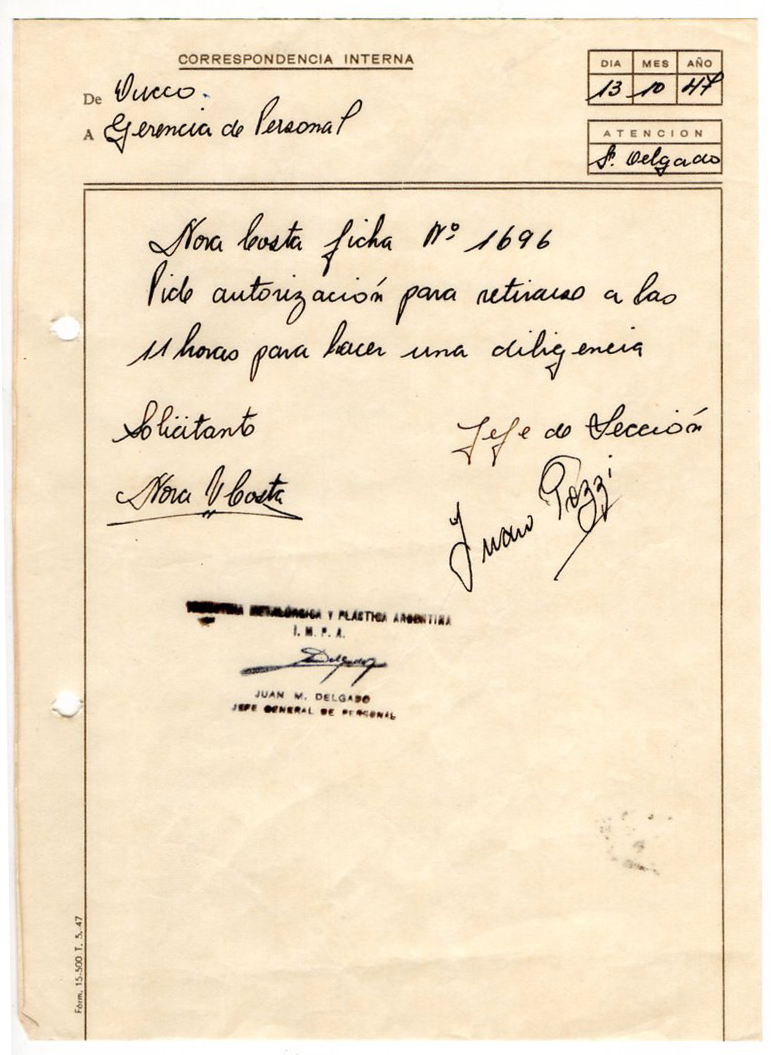 CORRESPONDENCIA INTERNA
DIA MES AÑO
13 10 47
De Ducco.
A Gerencia de Personal
ATENCION
Sr. Delgado
Nora Costa ficha Nº 1696
Pide autorización para retirarse a las
11 horas para hacer una diligencia
Solicitante
Jefe de Sección
Nora V Costa
Juan Pozzi
METALÚRGICA Y PLÁSTICA ARGENTINA
I. M. P. A.
Delgado
JUAN M. DELGADO
JEFE GENERAL DE PERSONAL
Form. 15-500 T. 5. 47